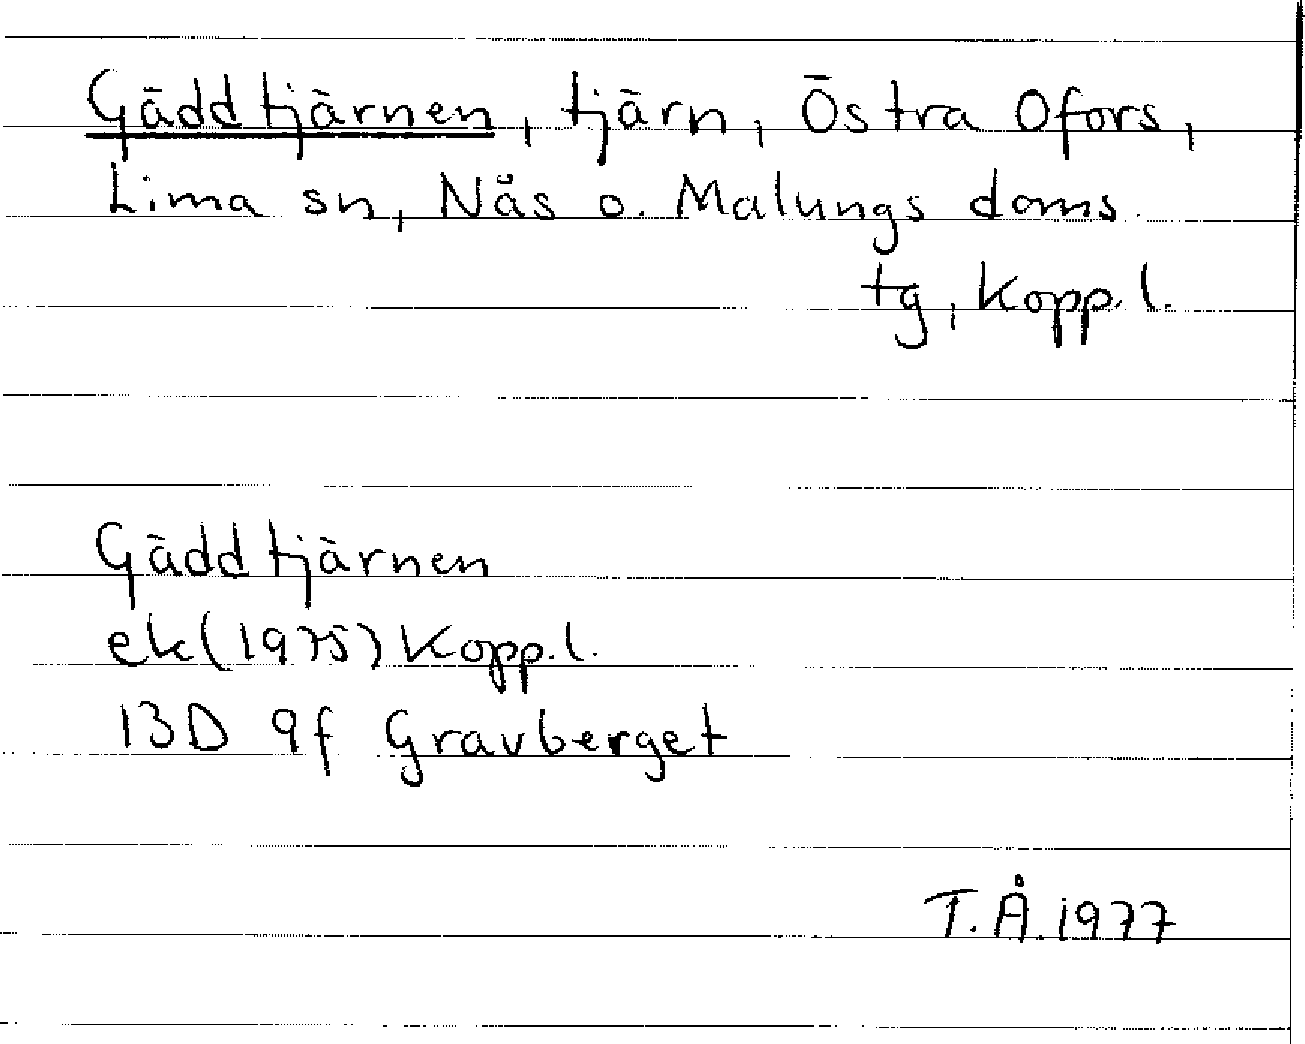 Gäddtjärnen, tjärn, Östra Ofors,
Lima sn, Nås o. Malungs doms.
tg, Kopp. l.
Gäddtjärnen
ek (1975) Kopp. l.
13D 9f Gravberget
T.Å. 1977